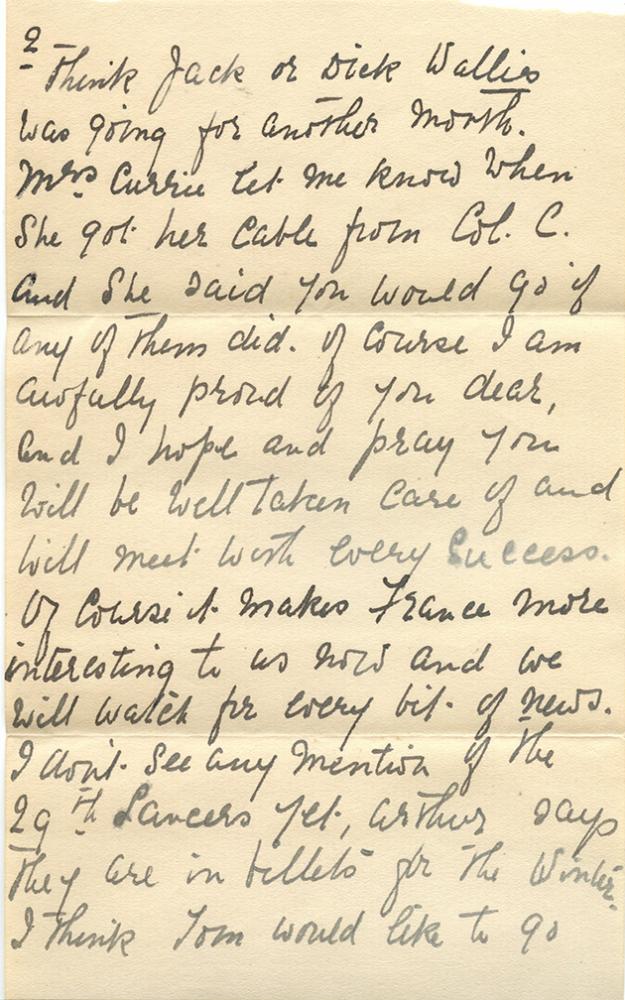 2
Think Jack or Dick Wallis
was going for another month.
Mrs Currie let me know when
She got her cable from Col. C.
and She said you would go if
any of them did. of course I am
awfully proud of you dear,
and I hope and pray you
will be well taken care of and
will meet with every Success.
Of course it makes France more
interesting to us now and we
will watch for every bit of news.
I don't see any mention of the
29th Lancers yet, Arthur says
they are in billets for the Winter.
I think Tom would like to go